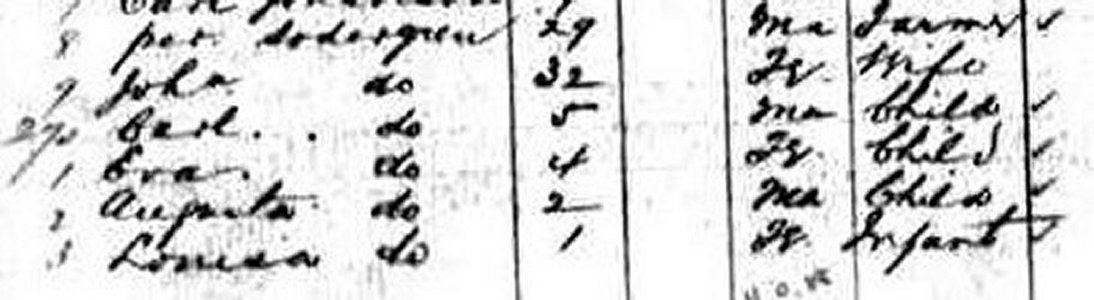 8 per. Sodergren 29 Ma Farmer ✓
9 John do 32 Fe. Wife
270 Carl . . do 5 Ma Child ✓
1 Eva. do 4 Fe. Child ✓
2 Augusta do 2 Ma Child ✓
3 Louisa do 1 Fe. Infant ✓